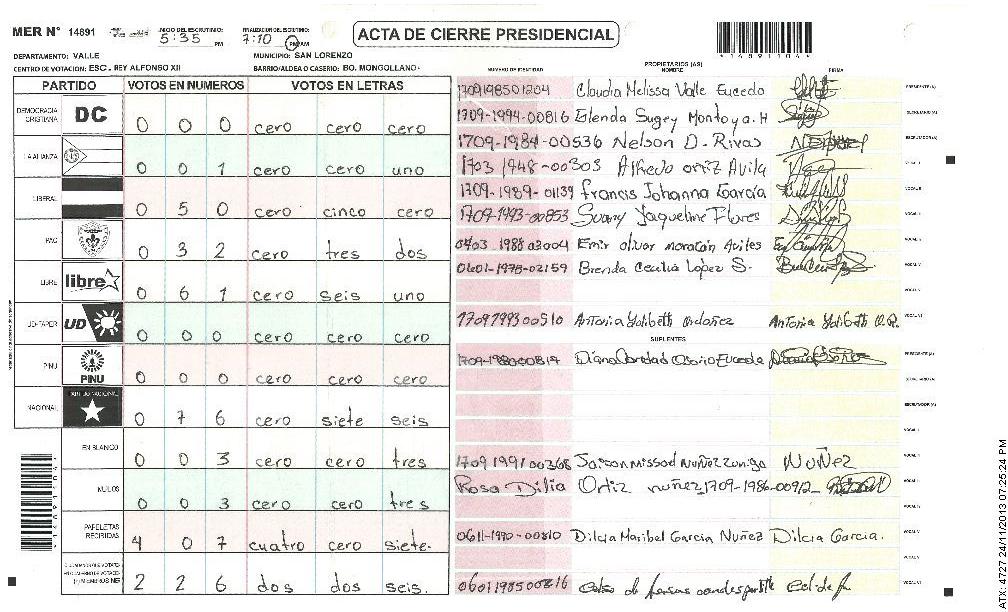 MER N° 14891 INICIO DEL ESCRUTINIO: 5:35 PM FINALIZACION DEL ESCRUTINIO: 7:10 PM AM ACTA DE CIERRE PRESIDENCIAL
DEPARTAMENTO: VALLE MUNICIPIO: SAN LORENZO
CENTRO DE VOTACION: ESC. REY ALFONSO XII BARRIO/ALDEA O CASERIO: BO. MONGOLLANO
PARTIDO VOTOS EN NUMEROS VOTOS EN LETRAS
DEMOCRACIA CRISTIANA DC 0 0 0 cero cero cero
LA ALIANZA 0 0 1 cero cero uno
LIBERAL 0 5 0 cero cinco cero
PAC 0 3 2 cero tres dos
LIBRE libre 0 6 1 cero seis uno
UD-FAPER UD 0 0 0 cero cero cero
PINU PINU 0 0 0 cero cero cero
NACIONAL PARTIDO NACIONAL 0 7 6 cero siete seis
EN BLANCO 0 0 3 cero cero tres
NULOS 0 0 3 cero cero tres
PAPELETAS RECIBIDAS 4 0 7 cuatro cero siete
2 2 6 dos dos seis.
NUMERO DE IDENTIDAD PROPIETARIOS (AS) NOMBRE FIRMA
1709198501204 Claudia Melissa Valle Euceda PRESIDENTE (A)
1709-1994-00816 Glenda Sugey Montoya H SECRETARIO (A)
1709-1984-00536 Nelson D. Rivas ESCRUTADOR (A)
1703 1948-00303 Alfredo ortiz Avila VOCAL I
1709-1989-01139 Francis Johanna Garcia VOCAL II
1709-1993-00853 Suany Jaqueline Flores
0703 1988 03004 Emir olivar Avilez
0601-1975-02159 Brenda Cecilia López S.
1709199300510 Antonia Yolibeth Ordoñez Antonia Yolibeth O.R.
SUPLENTES
Euceda PRESIDENTE (A)
SECRETARIO (A)
ESCRUTADOR (A)
VOCAL I
1709 1991 00368 Nuñez Zuniga Nuñez
Rosa Dilia Ortiz nuñez 1709-1986-00912
0611-1990-00810 Dilcia Maribel Garcia Nuñez Dilcia Garcia.
0601198500816
TX: 4727 24/11/2013 07:25:24 PM